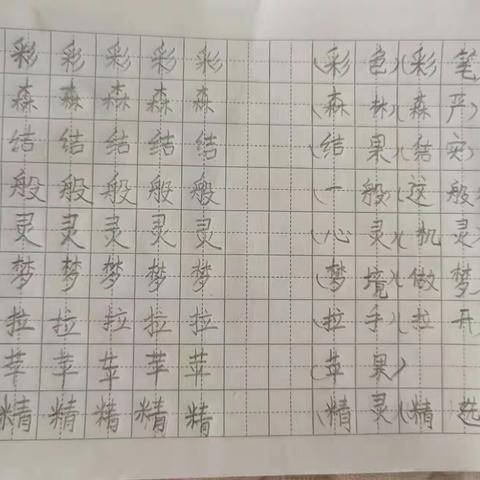 彩彩彩彩彩 (彩色)(彩笔
森森森森森 (森林)(森严)
结结结结结 (结果)(结实)
般般般般般 (一般)(这般
灵灵灵灵灵 (心灵)(机灵)
梦梦梦梦梦 (梦境)(做梦)
拉拉拉拉拉 (拉手)(拉开)
苹苹苹苹苹 (苹果)
精精精精精 (精灵)(精选